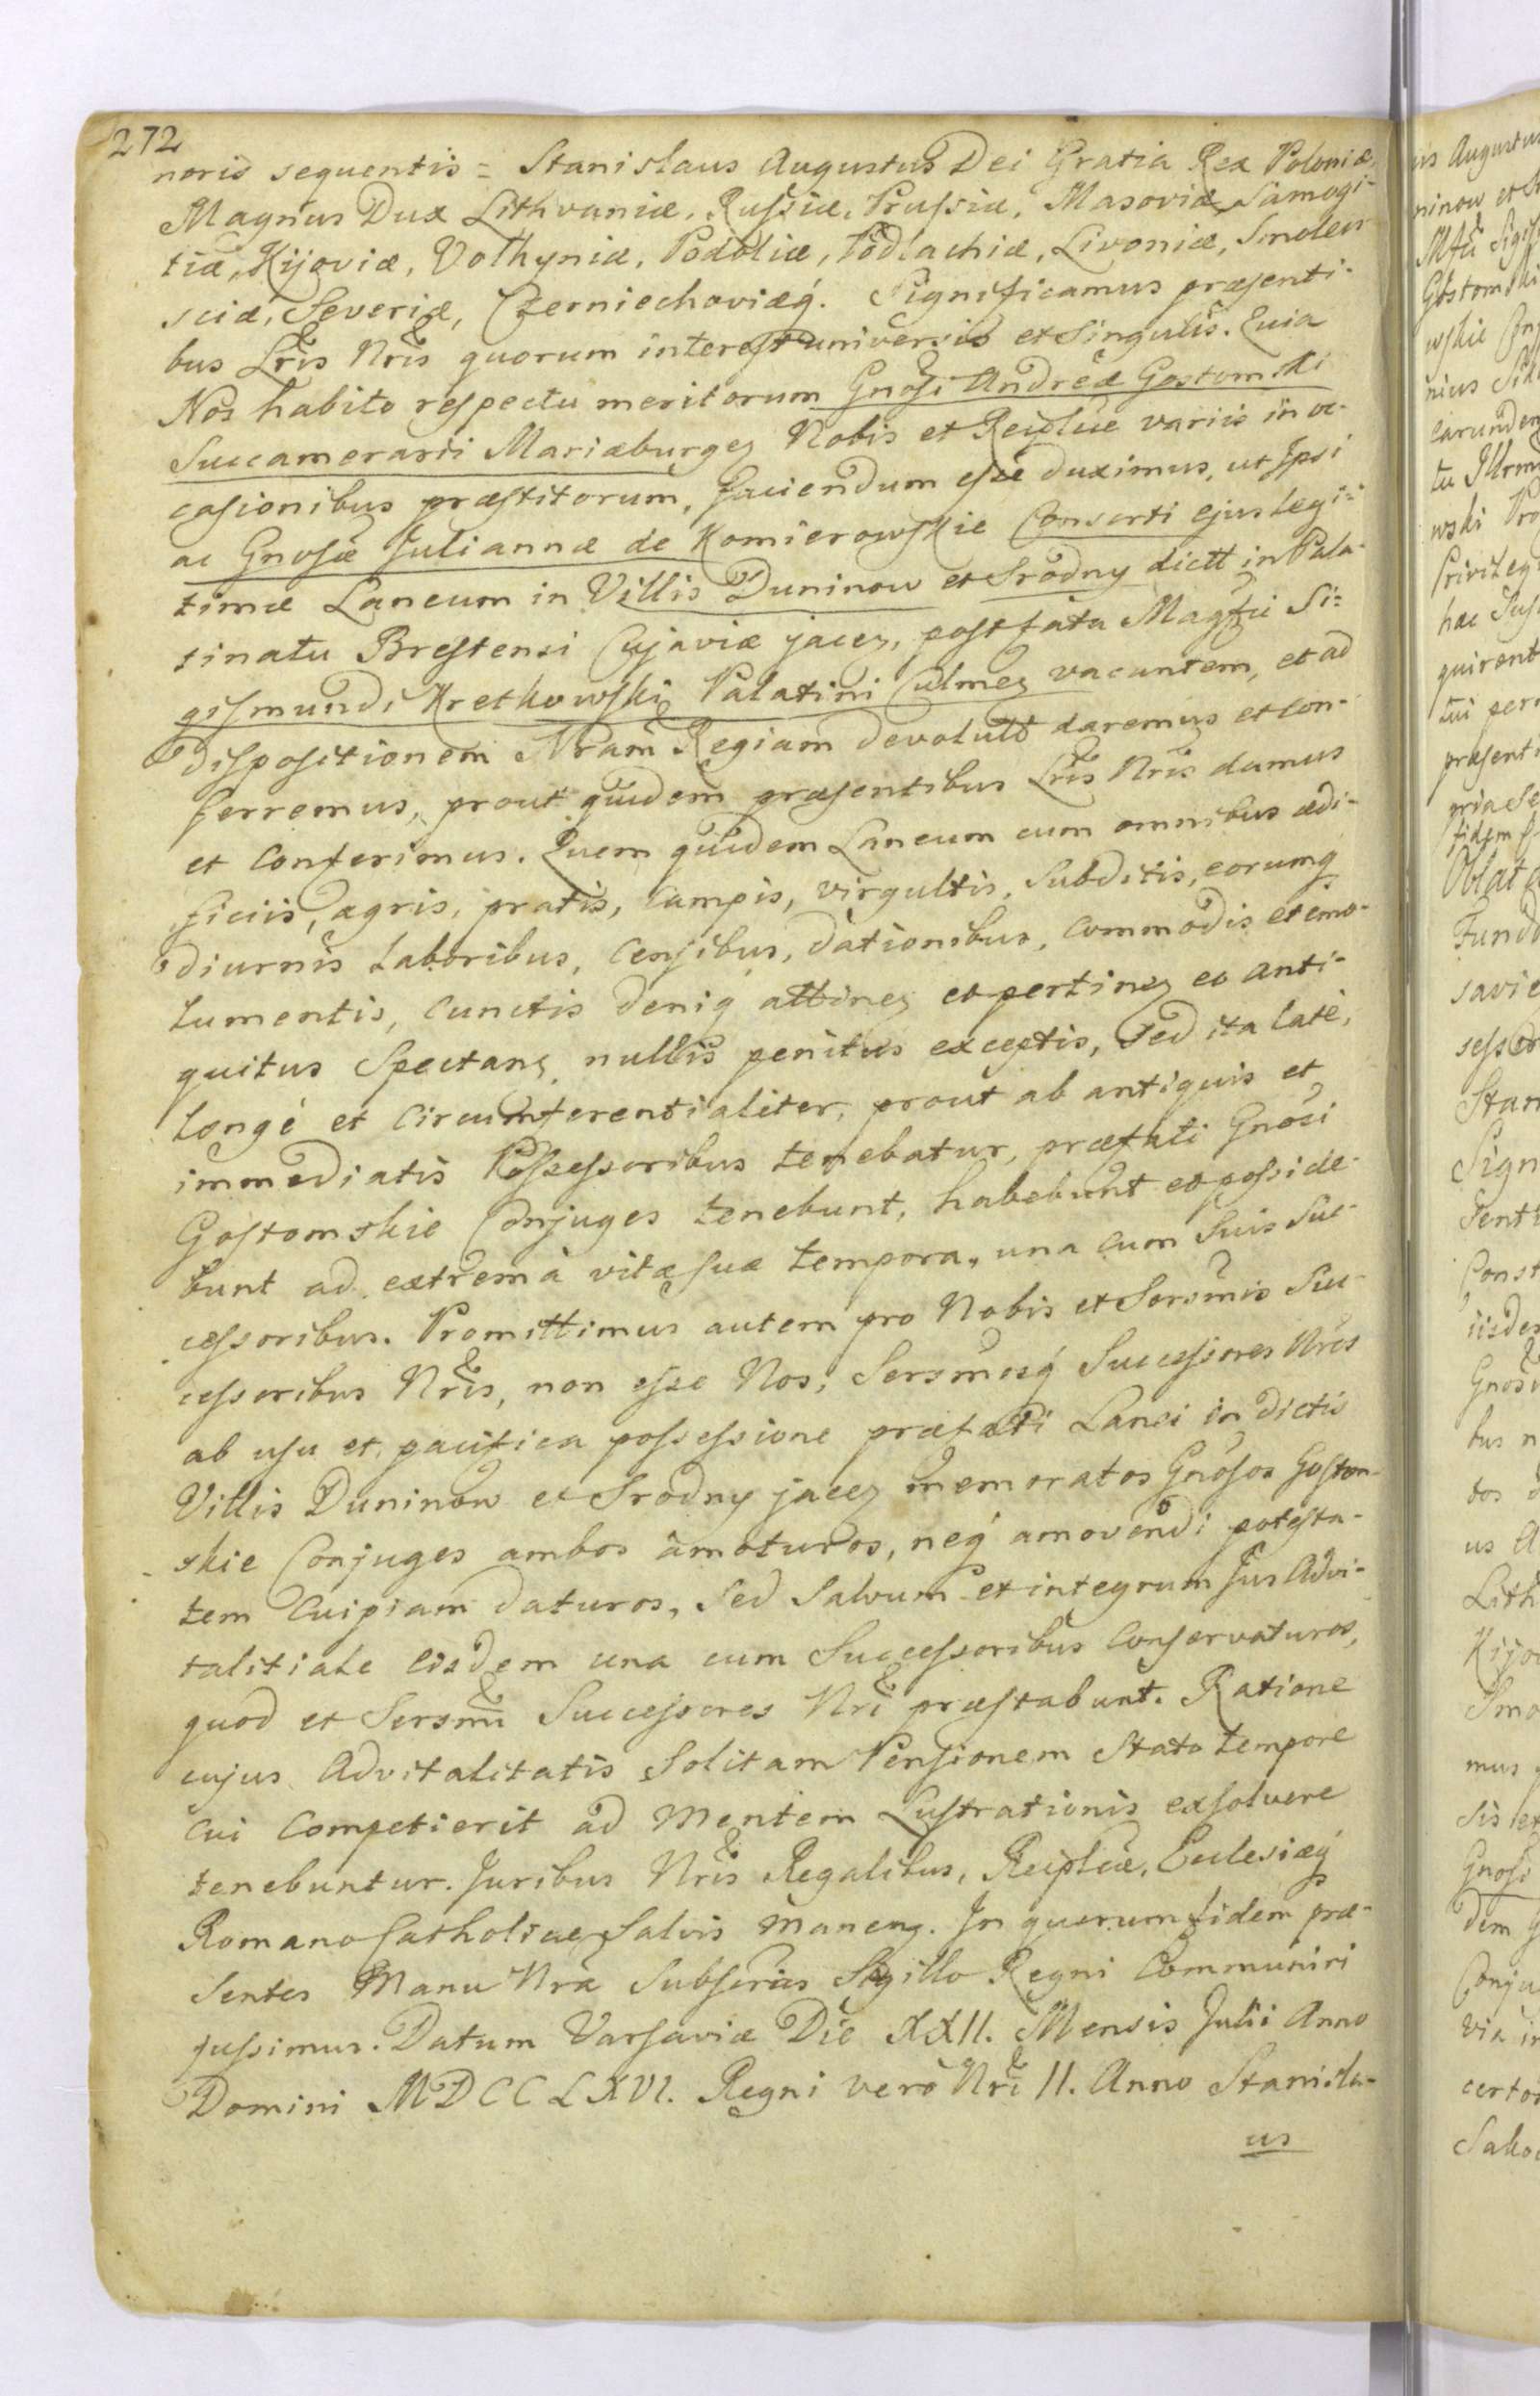 272
noris sequentis = Stanislaus Augustus Dei Gratia Rex Poloniæ,
Magnus Dux Lithvaniæ, Russiæ, Prussiæ, Masoviæ, Samogi-
tiæ, Kijoviæ, Volhyniæ, Podoliæ, Podlachiæ, Livoniæ, Smolen-
sciæ, Severiæ, Czerniechoviæq́. Significamus præsenti-
bus Lr̃is Nr̃is quorum interest universis et Singulis. Quia
Nos habito respectu meritorum Gñosi Andreæ Gostomski
Succamerarii Mariæburgeɳ Nobis et Reiplicæ variis in oc-
casionibus præstitorum, faciendum esse duximus, ut Ipsi
ac Gnosæ Juliannæ de Komierowskie Consorti ejus legi-
timæ Laneum in Villis Duninow et Srodny dictt in Pala-
tinatu Brestensi Cujaviæ jaceɳ, post fata Magfci Si=
gismundi Kretkowski Palatini Culmeɳ vacantem, et ad
dispositionem Nr̃am Regiam devolutt daremus et con-
ferremus, prout quidem præsentibus Lr̃is Nr̃is damus
et conferimus. Quem quidem Laneum cum omnibus ædi-
ficiis, agris, pratis, campis, virgultis, Subditis, eorumq́
diurnis laboribus, censibus, dationibus, commodis et emo-
lumentis, cunctis deniq́ attineɳ et pertineɳ ex anti-
quitus Spectanɳ, nullis penitus exceptis, Sed ita latè,
longé et circumferentialiter, prout ab antiquis et
immediatis Possessoribus tenebatur, præfati Gnosi
Gostomskie Conjuges tenebunt, habebunt et posside-
bunt ad extrema vitæ suæ tempora, una cum Suis Suc-
cessoribus. Promittimus autem pro Nobis et Sersm̃is Suc-
cessoribus Nr̃is, non esse Nos, Sersm̃osq́ Successores Nr̃os
ab usu et pacifica possessione præfati Lanei in dictis
Villis Duninow et Srodny jaceɳ memoratos Gnosos Gostom-
skie Conjuges ambos amoturos, neq́ amovendi potesta-
tem cuipiam daturos, Sed Salvum et integrum Jus Advi-
talitiale eisdem una cum Successoribus conservaturos,
quod et Sersm̃i Successores Nr̃i præstabunt. Ratione
cujus Advitalitatis Solitam Pensionem Stato tempore
cui competierit ad mentem Lustrationis exsolvere
tenebuntur. Juribus Nr̃is Regalibus, Reiplicæ, Ecclesiæq́
Romano Catholicæ Salvis maneɳ. In quorum fidem præ-
sentes Manu Nr̃a Subscriɳ Sigillo Regni Communiri
jussimus. Datum Varsaviæ Die XXII. Mensis Julii Anno
Domini MDCCLXVI. Regni verò Nr̃i II. Anno Stanisla-
us